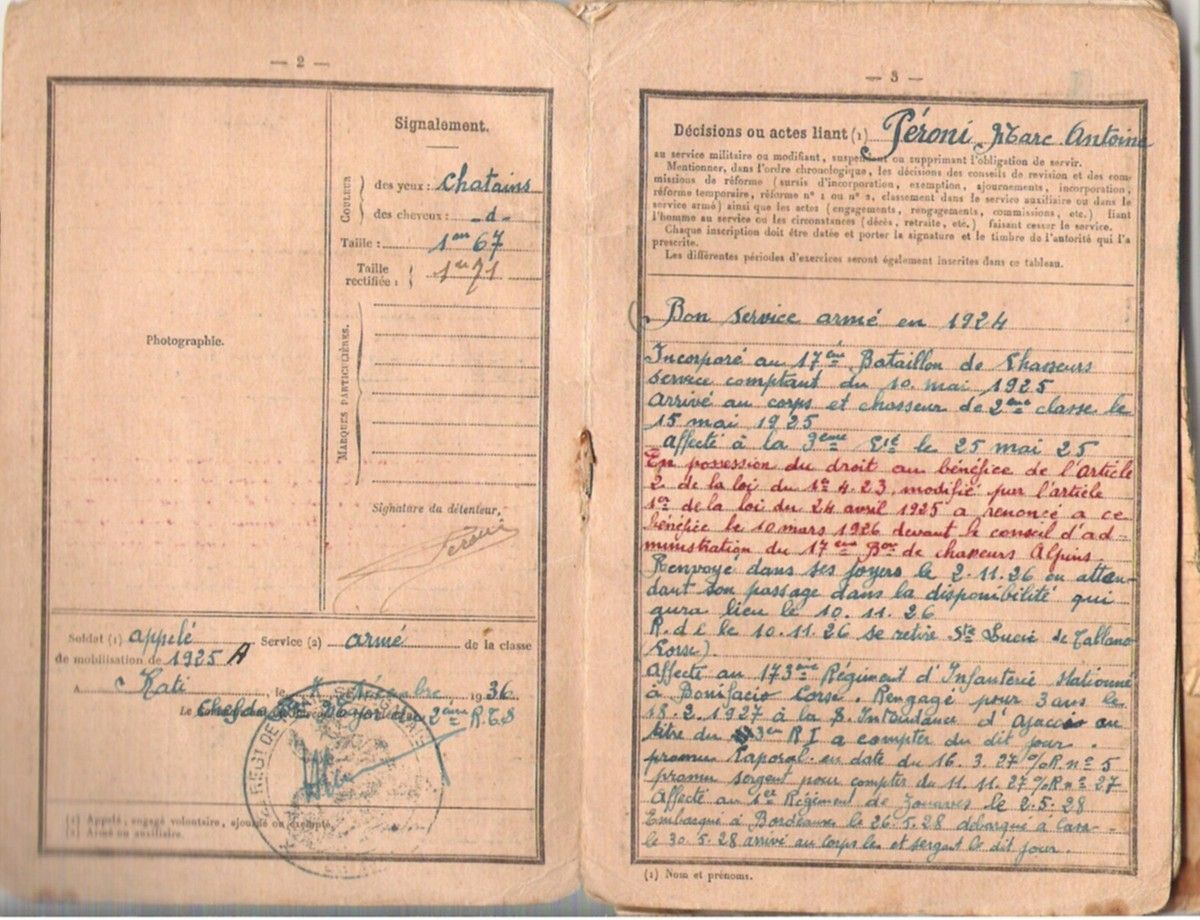 — 2 —
Signalement.
COULEUR
des yeux : chatains
des cheveux : -d-
Taille : 1m 67
Taille
rectifiée : 1m 71
MARQUES PARTICULIÈRES.
Photographie.
Signature du détenteur,
Peroni
Soldat (1) appelé Service (2) armé de la classe
de mobilisation de 1925 A
A Kati, le Décembre 1936
Le Chef de Major du 2ème R.T.S
(1) Appelé, engagé volontaire, ajourné ou exempté.
(2) Armé ou auxiliaire.
— 3 —
Décisions ou actes liant (1) Péroni Marc Antoine
au service militaire ou modifiant, suspendant ou supprimant l'obligation de servir.
Mentionner, dans l'ordre chronologique, les décisions des conseils de revision et des com-
missions de réforme (sursis d'incorporation, exemption, ajournements, incorporation,
réforme temporaire, réforme n° 1 ou n° 2, classement dans le service auxiliaire ou dans le
service armé) ainsi que les actes (engagements, rengagements, commissions, etc.) liant
l'homme au service ou les circonstances (décès, retraite, etc.) faisant cesser le service.
Chaque inscription doit être datée et porter la signature et le timbre de l'autorité qui l'a
prescrite.
Les différentes périodes d'exercices seront également inscrites dans ce tableau.
Bon service armé en 1924
Incorporé au 17ème Bataillon de Chasseurs
service comptant du 10 mai 1925
arrivé au corps et chasseur de 2ème classe le
15 mai 1925
affecté à la 3ème Cie le 25 mai 25
En possession du droit au bénéfice de l'article
2 de la loi du 1er 4.23, modifié par l'article
1er de la loi du 24 avril 1925 a renoncé a ce
bénéfice le 10 mars 1926 devant le conseil d'ad-
ministration du 17ème Bon de chasseurs Alpins
Renvoyé dans ses foyers le 2.11.26 en atten-
dant son passage dans la disponibilité qui
aura lieu le 10.11.26
R.d.c le 10.11.26 se retire Ste Lucie de Tallano
(Corse).
Affecté au 173ème Régiment d'Infanterie Stationné
à Bonifacio Corse. Rengagé pour 3 ans le
18.2.1927 à la S. Intendance d'Ajaccio au
titre du 173e RI a compter du dit jour.
promu Caporal en date du 16.3.27 O/R. n° 5
promu sergent pour compter du 11.11.27 O/R n° 27
Affecté au 1er Régiment de Zouaves le 2.5.28
Embarqué à Bordeaux le 26.5.28 débarqué à Casa-
le 30.5.28 arrivé au corps le et sergent le dit jour.
(1) Nom et prénoms.